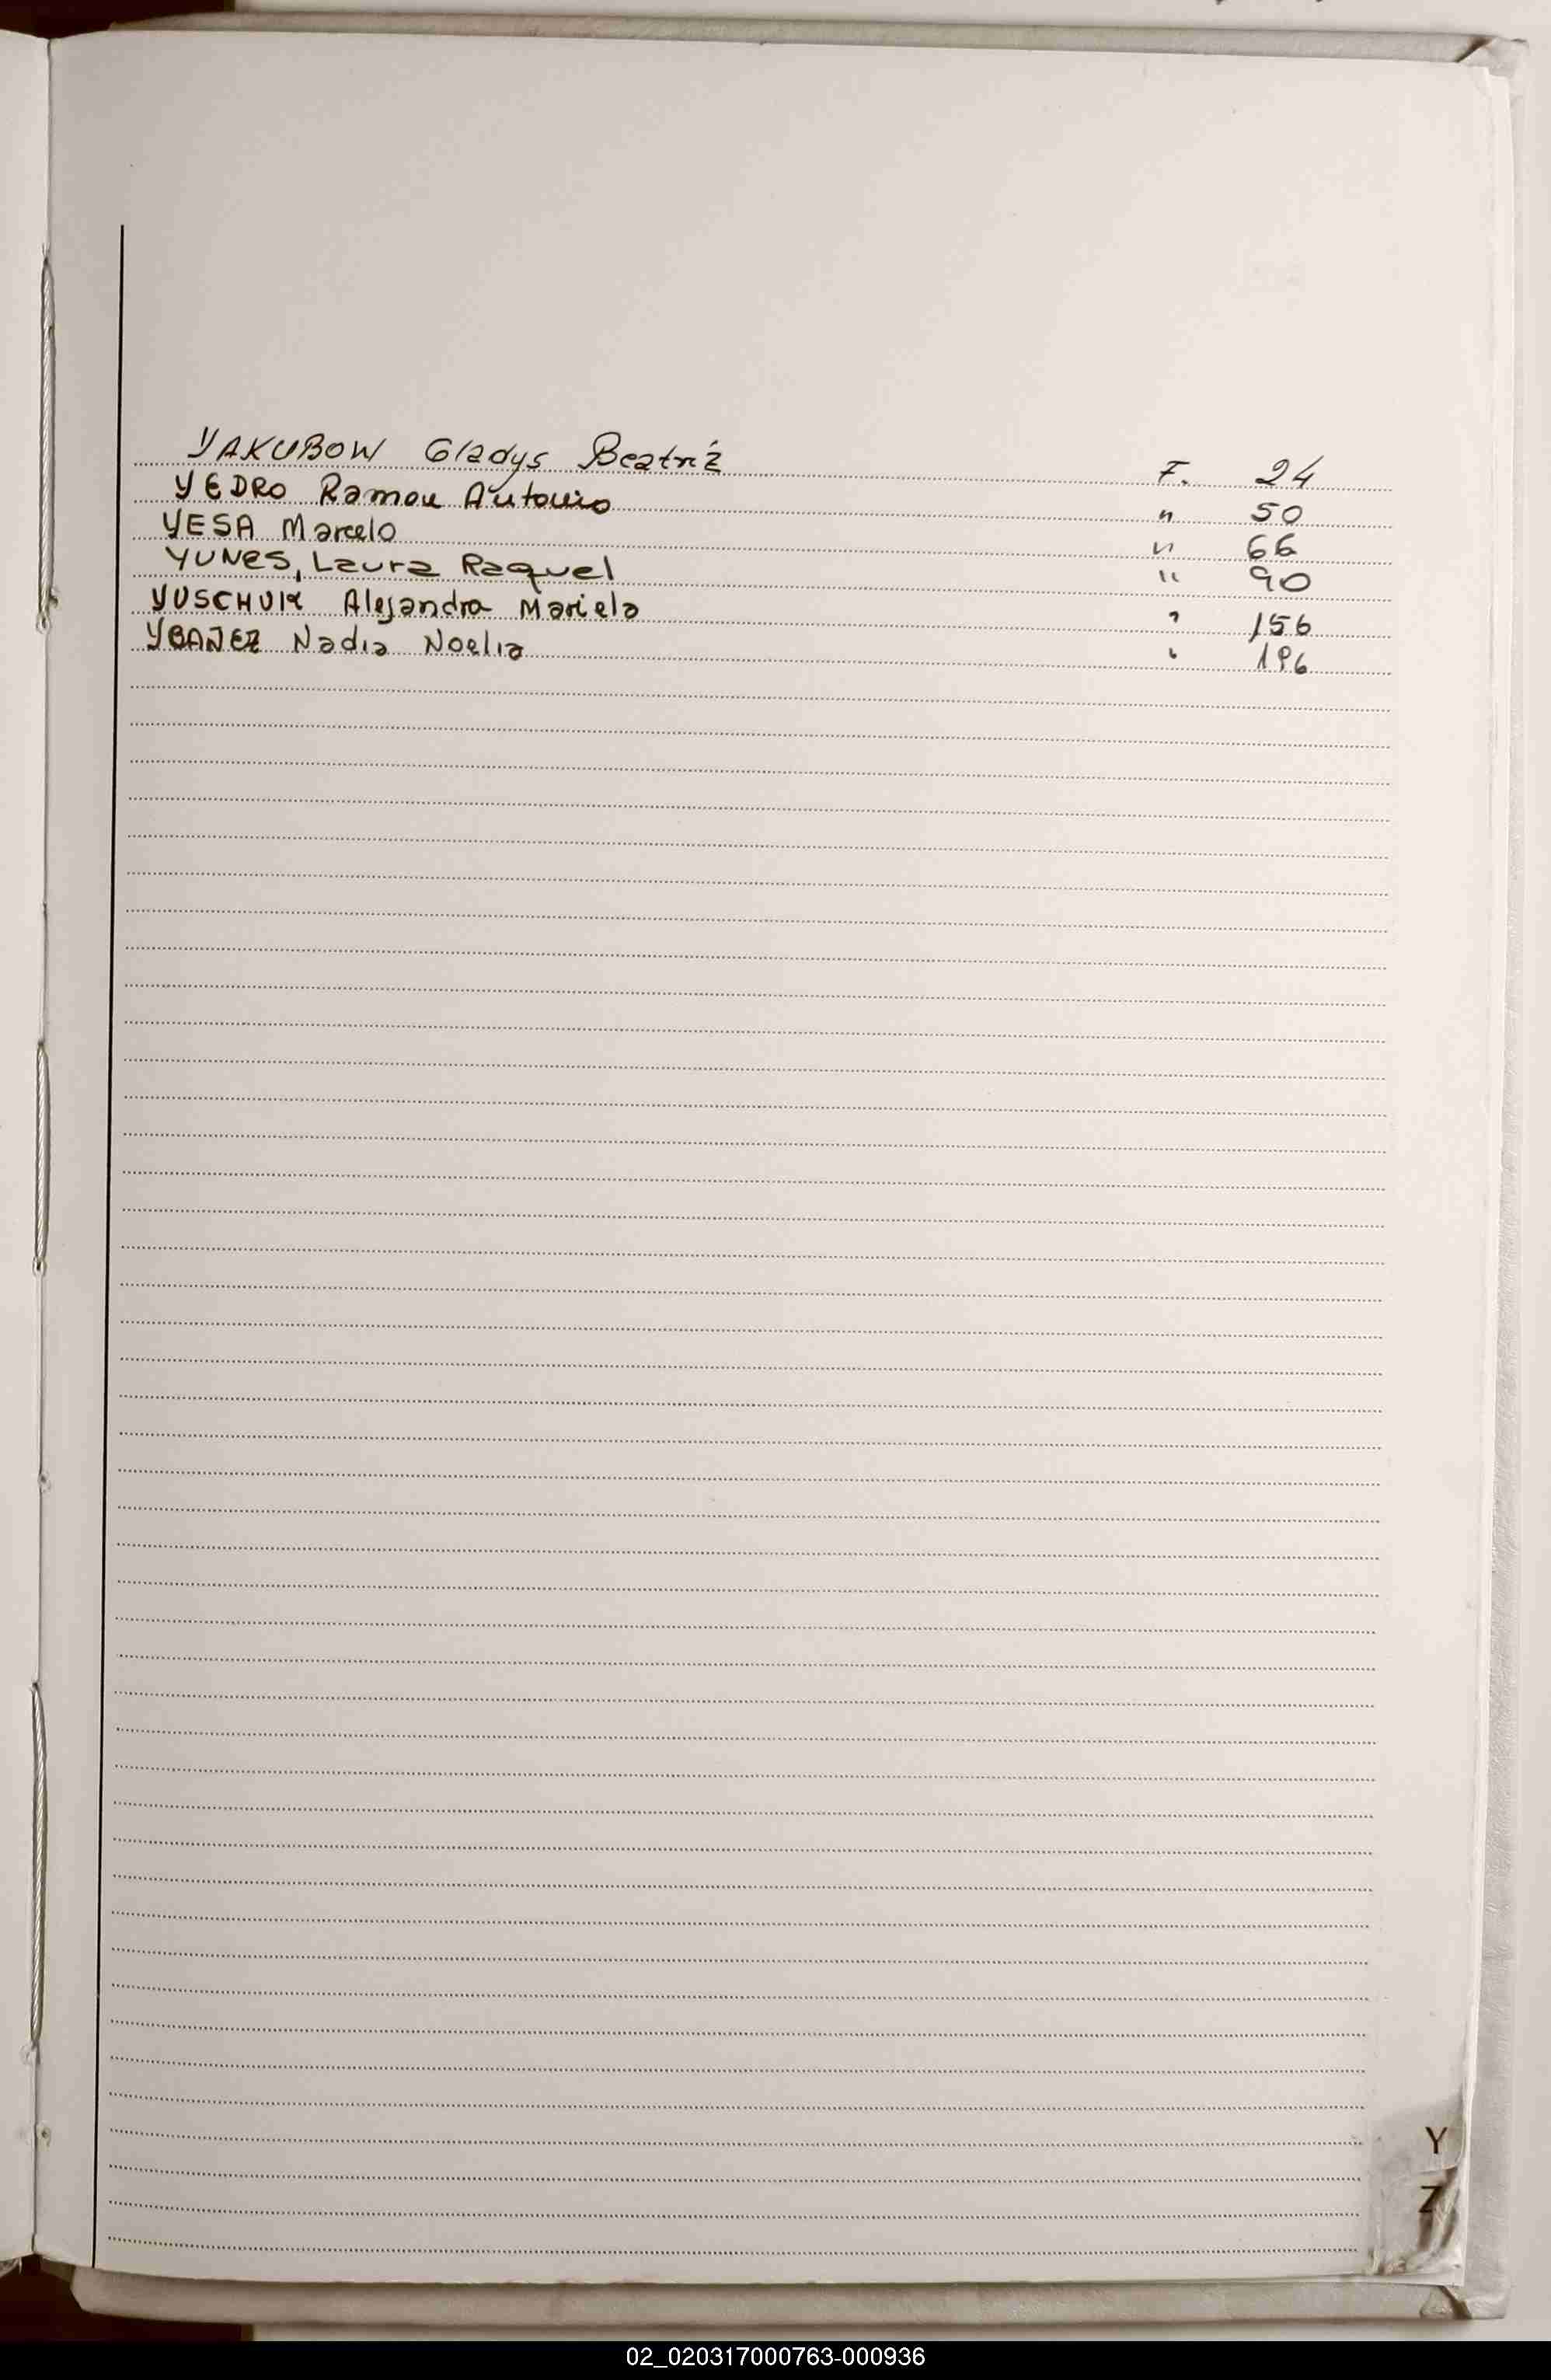 YAKUBOW Gladys Beatriz F. 24
YEDRO Ramon Antonio " 50
YESA Marcelo " 66
YUNES, Laura Raquel " 90
YUSCHUIK Alejandra Mariela " 156
YBAÑEZ Nadia Noelia " 196
Y
Z
02_020317000763-000936